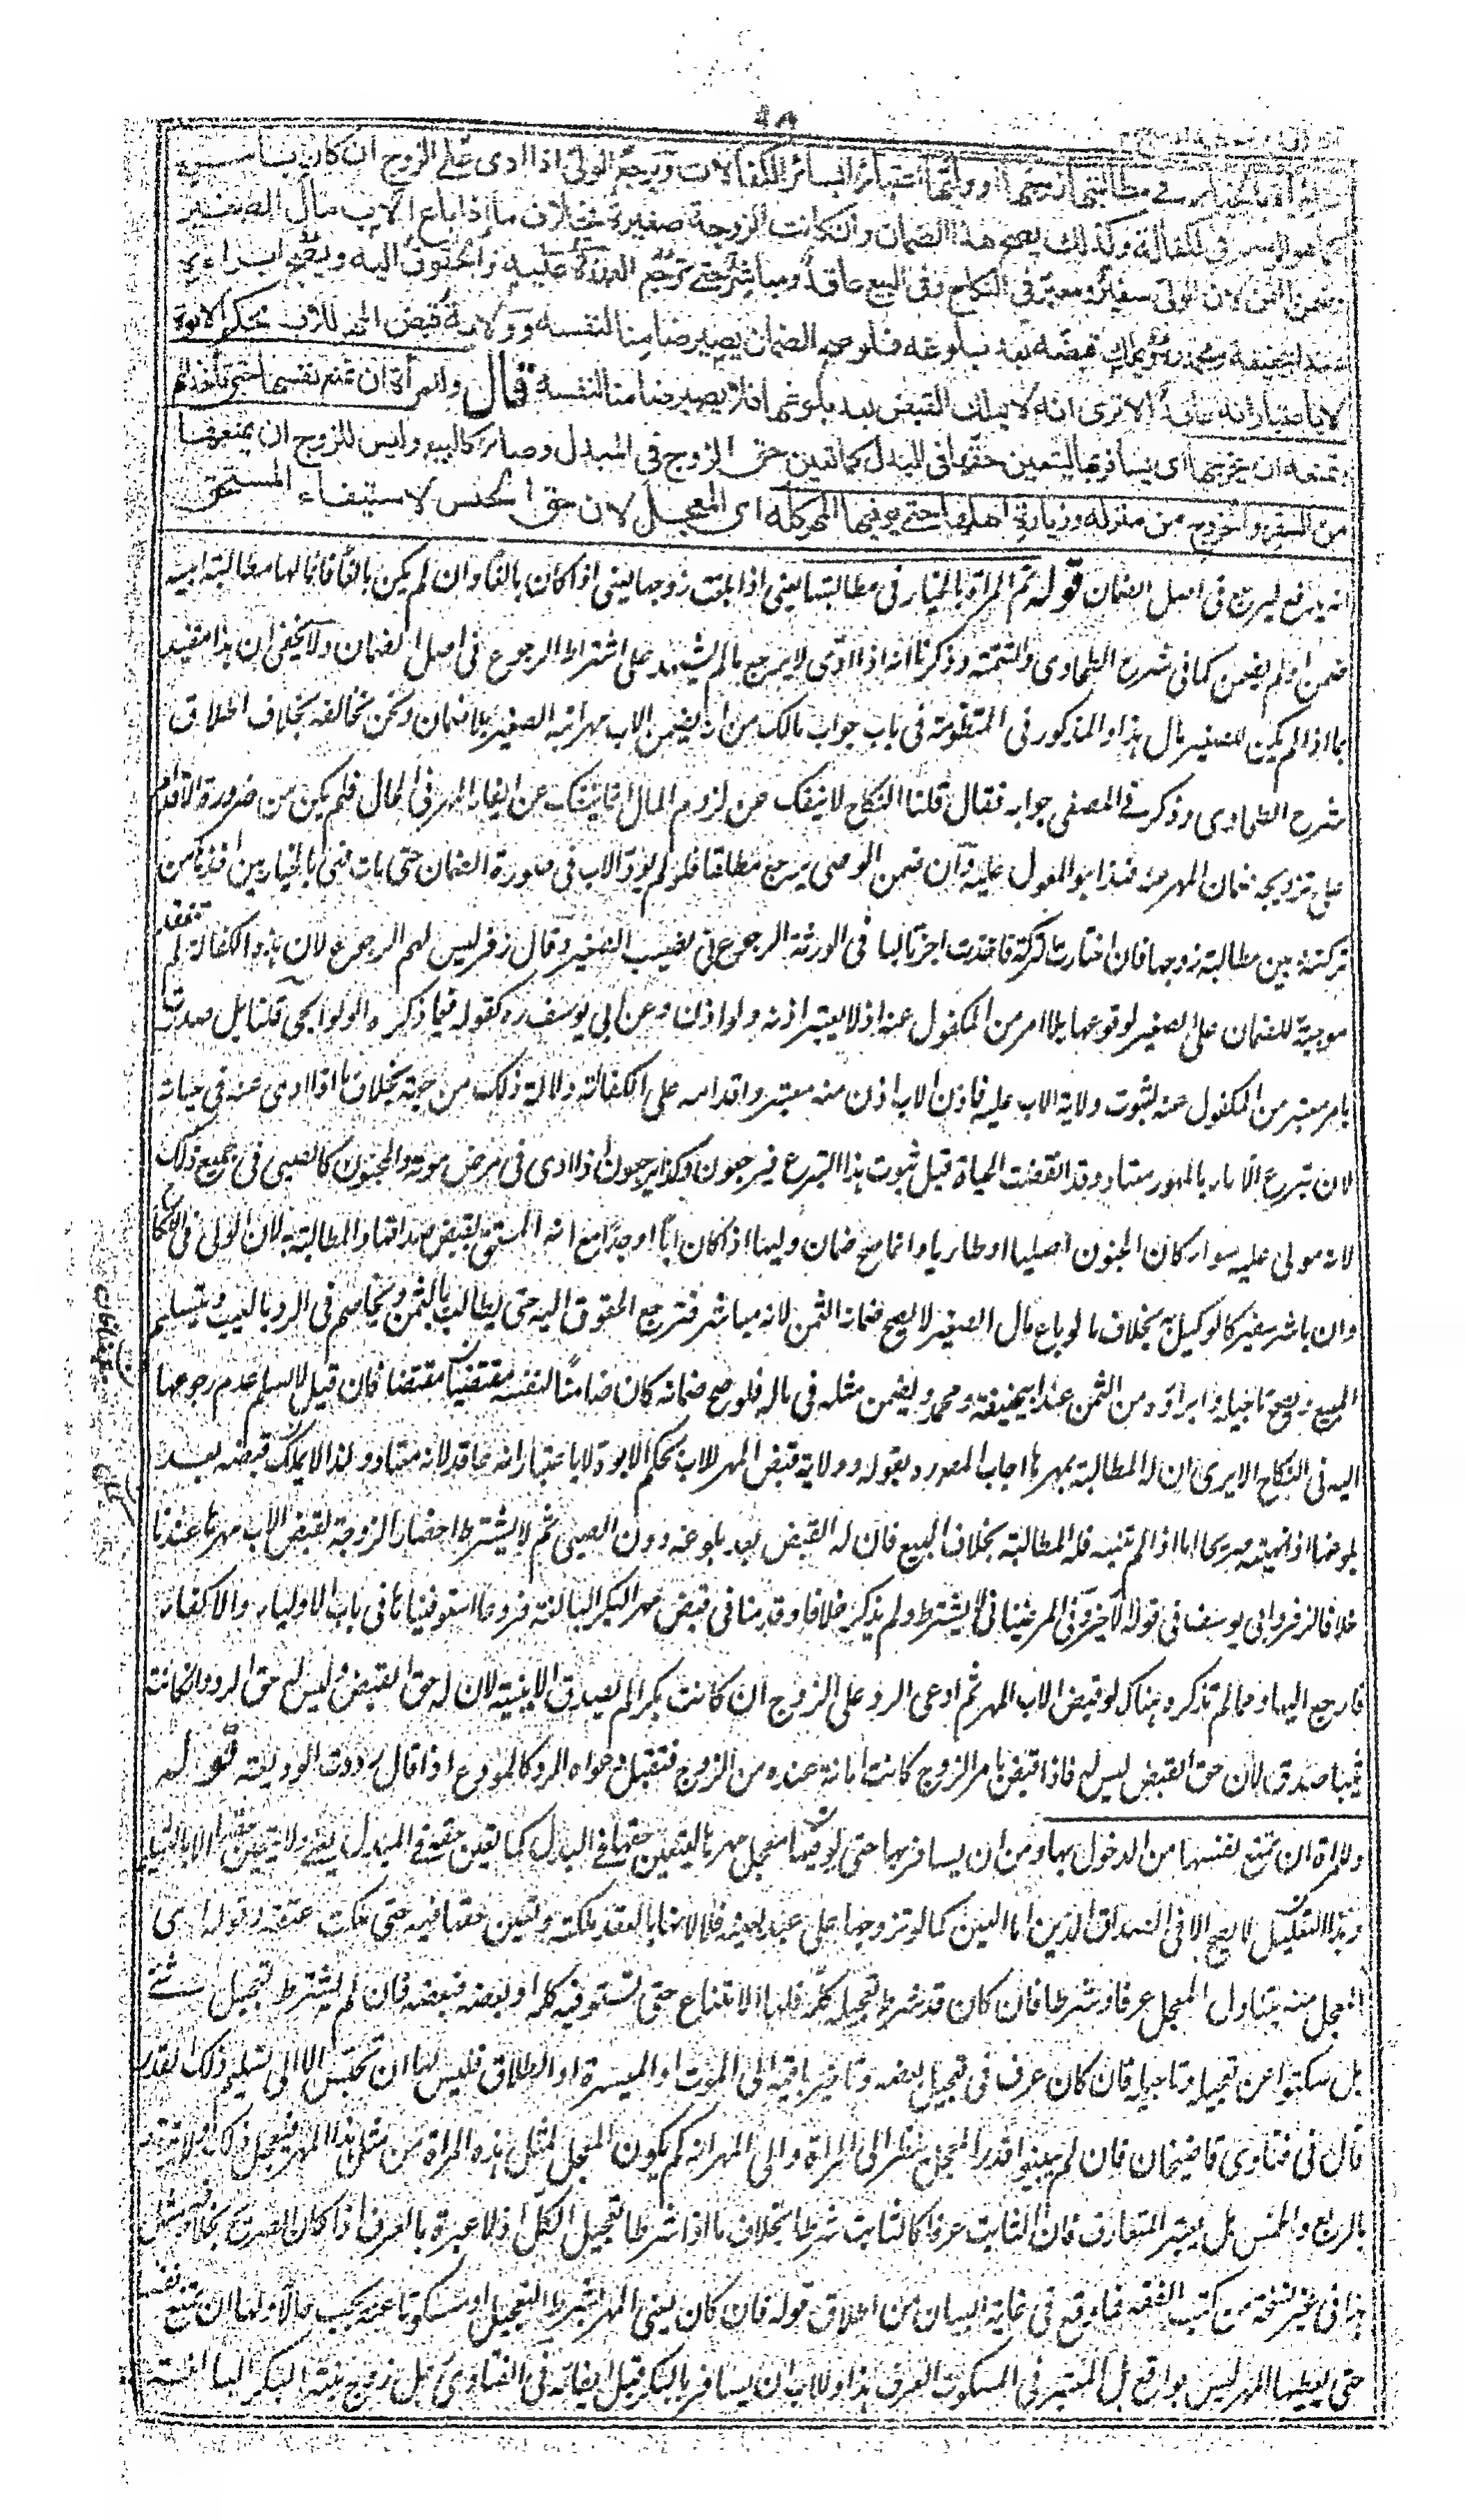 ثم المرأة بالخيار في مطالبتها زوجها أو وليها اعتبارا بسائر الكفالات ويرجع الولي اذا ادى على الزوج ان كان بامره
كما هو الرسم في الكفالة وكذلك يصح هذا الضمان وان كانت الزوجة صغيرة بخلاف ما اذا باع الاب مال الصغير
وضمن الثمن لان الولي سفير ومعبر في النكاح وفي البيع عاقد ومباشر حتى ترجع العهدة عليه والحقوق اليه ويصح ابراؤه
عند ابيحنيفة ومحمد ويملك قبضه بعد بلوغه فلو صح الضمان يصير ضامنا لنفسه وولاية قبض المهر للاب بحكم الابوة
لا باعتبار انه عاقد الا ترى انه لا يملك القبض بعد بلوغها فلا يصير ضامنا لنفسه قال وللمرأة ان تمنع نفسها حتى تأخذ المهر
وتمنعه ان يخرجها اى يسافر بها ليتعين حقها في البدل كما تعين حق الزوج في المبدل وصار كالبيع وليس للزوج ان يمنعها
من السفر والخروج من منزله وزيارة اهلها حتى يوفيها المهر كله اى المعجل لان حق الحبس لاستيفاء المستحق
انه يدفع ليرجع في اصل الضمان قوله ثم المرأة بالخيار في مطالبتها يعني اذا بلغت زوجها يعني اذا كان بالغا وان لم يكن بالغا فانما لها مطالبة ابيه
ضمن او لم يضمن كما في شرح الطحاوي والتتمة وذكرنا انه اذا ادى لا يرجع ما لم يشهد على اشتراط الرجوع في اصل الضمان ولا يخفى ان هذا مقيد
بما اذا لم يكن للصغير مال هذا والمذكور في المنظومة في باب جواب مالك من انه يضمن الاب مهر ابنه الصغير بلا ضمان ونحن نخالفه بخلاف اطلاق
شرح الطحاوي وذكر في المصفى جوابه فقال قلنا النكاح لا ينفك عن لزوم المال انما ينفك عن ايفاء المهر في الحال فلم يكن من ضرورة الاقدام
على تزويجه ضمان المهر عنه فهذا هو المعول عليه وان ضمن الوصي يرجع مطلقا فلو لم يؤد الاب في صورة الضمان حتى مات فهي بالخيار بين اخذها من
تركته وبين مطالبة زوجها فان اختارت التركة فاخذت اجزنا لباقي الورثة الرجوع في نصيب الصغير وقال زفر ليس لهم الرجوع لان هذه الكفالة لم تنعقد
موجبة للضمان على الصغير لوقوعها بلا امر من المكفول عنه اذ لا يعتبر اذنه ولو اذن وعن ابي يوسف ره كقوله فيما ذكره الولوالجي قلنا بل صدرت
بامر معتبر من المكفول عنه لثبوت ولاية الاب عليه فاذن الاب اذن منه معتبر واقدامه على الكفالة دلالة ذلك من جهته بخلاف ما اذا ادى عنه في حياته
لان تبرع الآباء بالمهور معتاد وقد انقضت الحياة قبل ثبوت هذا التبرع فيرجعون وكذا يرجعون اذا ادى في مرض موته والمجنون كالصبي في جميع ذلك
لانه مولى عليه سواء كان الجنون اصليا او طاريا وانما صح ضمان وليها اذا كان ابا او جدا مع انه المستحق لقبض صداقها والمطالبة به لان الولي في النكاح
وان باشر سفير كالوكيل به بخلاف ما لو باع مال الصغير لا يصح ضمانه الثمن لانه مباشر فترجع الحقوق اليه حتى يطالب بالثمن ويخاصم في الرد بالعيب وبتسليم
المبيع ويصح تاجيله وابراؤه من الثمن عند ابيحنيفة ومحمد ويضمن مثله في ماله فلو صح ضمانه كان ضامنا لنفسه مقتضيا مقتضا فان قيل لا نسلم عدم رجوعها
اليه في النكاح الا يرى ان له المطالبة بمهرها اجاب المصوره بقوله وولاية قبض المهر للاب بحكم الابوة لا باعتبار انه عاقد لانه معتاد ولهذا لا يملك قبضه بعد
بلوغها اذا نهته صريحا اما اذا لم تنهه فله المطالبة بخلاف البيع فان له القبض بعد بلوغه دون الصبي ثم لا يشترط احضار الزوجة لقبض الاب مهرها عندنا
خلافا لزفر وابي يوسف في قوله الآخر وفي المرغيناني لا يشترط ولم يذكر خلافا وقدمنا في قبض مهر البكر البالغة فروعا استوفيناها في باب الاولياء والاكفاء
فارجع اليها ومما لم نذكره هناك لو قبض الاب المهر ثم ادعى الرد على الزوج ان كانت بكرا لم يصدق الا ببينة لان له حق القبض وليس له حق الرد وان كانت
ثيبا صدق لان حق القبض ليس له فاذا قبض بامر الزوج كانت امانة عنده من الزوج فتقبل دعواه الرد كالمودع اذا قال رددت الوديعة قوله
وللمرأة ان تمنع نفسها من الدخول بها ومن ان يسافر بها حتى يوفيها معجل مهرها ليتعين حقها في البدل كما تعين حقه في المبدل يعني ولا يتعين حقها الا بالتسليم
وهذا التعليل لا يصح الا في الصداق الدين اما العين كما لو تزوجها على عبد بعينه فلا لانها بالعقد ملكته وتعين حقها فيه حتى ملكت عتقه وقوله اى
المعجل منه يتناول المعجل عرفا وشرطا فان كان قد شرط تعجيل كله فلها الامتناع حتى تستوفيه كله او بعضه فبعضه فان لم يشترط تعجيل شئ
بل سكتوا عن تعجيله وتاجيله فان كان عرف في تعجيل بعضه وتاخير باقيه الى الموت او الميسرة او الطلاق فليس لها ان تحتبس الا الى تسليم ذلك القدر
قال في فتاوى قاضيخان فان لم يبينوا قدر المعجل ينظر الى المرأة والى المهر انه كم يكون المعجل لمثل هذه المرأة من مثل هذا المهر فيعجل ذلك ولا يتقدر
بالربع والخمس بل يعتبر المتعارف فان الثابت عرفا كالثابت شرطا بخلاف ما اذا شرطا تعجيل الكل اذ لا عبرة بالعرف اذا كان الصريح بخلافه ومثل
هذا في غير نسخة من كتب الفقه فما وقع في غاية البيان من اطلاق قوله فان كان يعني المهر بشرط التعجيل او مسكوتا عنه يجب حالا ولها ان تمنع نفسها
حتى يعطيها المهر ليس بواقع بل المعتبر في المسكوت العرف هذا وللاب ان يسافر بالبكر قبل ايفائه في الفتاوى رجل زوج بنته البكر البالغة